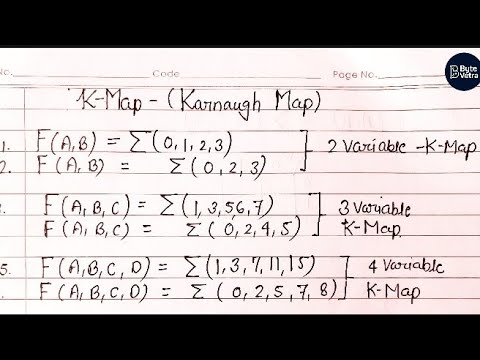 Byte
Vetra
No. Code Page No.
K-Map - (Karnaugh Map)
1. F(A,B) = Σ(0,1,2,3)
2. F(A,B) = Σ(0,2,3)
2 Variable -K-Map
F(A,B,C) = Σ(1,3,5,6,7)
F(A,B,C) = Σ(0,2,4,5)
3 Variable
K-Map
5. F(A,B,C,D) = Σ(1,3,7,11,15)
F(A,B,C,D) = Σ(0,2,5,7,8)
4 Variable
K-Map